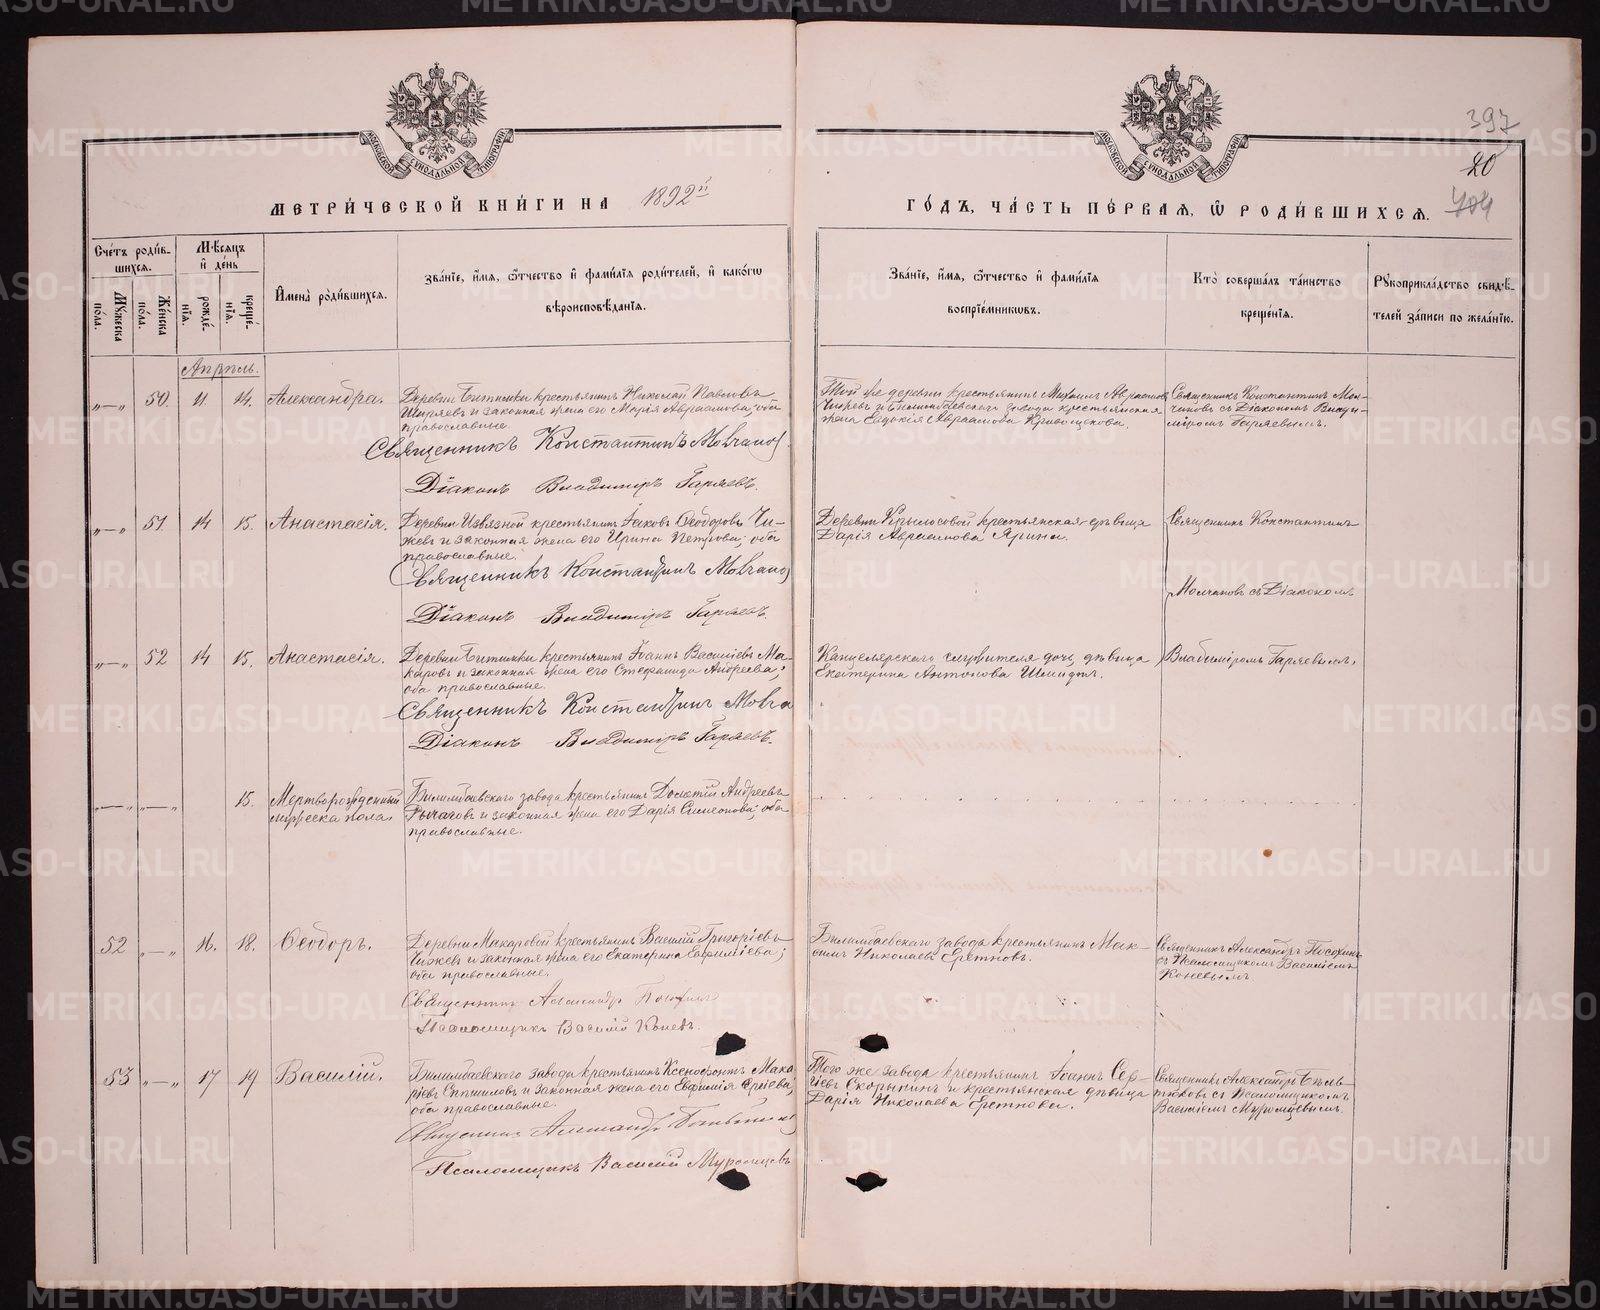 397
20
404
МОСКОВСКОЙ СУНОДАЛЬНОЙ ТИПОГРАФІИ
МЕТРИ́ЧЕСКОЙ КНИ́ГИ НА 1892й
ГО́ДЪ, ЧА́СТЬ ПЕ́РВАЯ, Ѡ РОДИ́ВШИХСЯ.
Сче́тъ роди́в-
шихся.
Мѣсяцъ
и де́нь
Мужеска по́ла.
Женска по́ла.
рожде́-
нія.
креще́-
нія.
Имена̀ роди́вшихся.
Зва́ніе, и́мя, ѻ́тчество и фами́лія роди́телей, и како́гѡ
вѣроисповѣ́данія.
Зва́ніе, и́мя, ѻ́тчество и фами́лія
воспріе́мниковъ.
Кто̀ соверша́лъ та́инство
креще́нія.
Рукоприкла́дство свидѣ́-
телей за́писи по жела́нію.
Апрѣль.
„—„ 50. 11. 14. Александра.
Деревни Битимки крестьянинъ Николай Павловъ
Ширяевъ и законная жена его Марія Авраамова, оба
православные.
Священникъ Константинъ Молчанов
Діаконъ Владиміръ Гаряевъ.
Той же деревни крестьянинъ Михаилъ Авраамовъ
Чижевъ и Билимбаевскаго завода крестьянская
жена Евдокія Авраамова Кривощекова.
Священникъ Константинъ Мол-
чановъ съ Діакономъ Влади-
міромъ Гаряевымъ.
„—„ 51. 14 15. Анастасія.
Деревни Извязной крестьянинъ Іаковъ Ѳеодоровъ Чи-
жевъ и законная жена его Ирина Петрова, оба
православные.
Священникъ Константинъ Молчанов
Діаконъ Владиміръ Гаряевъ.
Деревни Крылосовой крестьянская дѣвица
Дарія Авраамова Ярина.
Священникъ Константинъ
Молчановъ съ Діакономъ
„—„ 52 14 15. Анастасія.
Деревни Битимки крестьянинъ Іоаннъ Василіевъ Ма-
каровъ и законная жена его Стефанида Андреева;
оба православные.
Священникъ Константинъ Молча
Діаконъ Владиміръ Гаряевъ.
Канцелярскаго служителя дочь дѣвица
Екатерина Антонова Шмидтъ.
Владиміромъ Гаряевымъ.
„—„ „—„ 15. Мертворожденный
мужеска пола.
Билимбаевскаго завода крестьянинъ Андреевъ
Рычаговъ и законная жена его Дарія Симеонова, оба
православные.
52 „—„ 16. 18. Ѳеодоръ.
Деревни Макаровой крестьянинъ Василій Григоріевъ
Чижевъ и законная жена его Екатерина Евфиміева;
оба православные.
Священникъ Александръ
Псаломщикъ Василій Коневъ.
Билимбаевскаго завода крестьянинъ Мак-
симъ Николаевъ Еретновъ.
Священникъ Александръ
съ Псаломщикомъ Василіемъ
Коневымъ
53 „—„ 17 19 Василій.
Билимбаевскаго завода крестьянинъ Ксенофонтъ Мака-
ріевъ и законная жена его Евфимія
оба православные.
Священникъ Александръ
Псаломщикъ Василій Муромцевъ
Того же завода крестьянинъ Іоаннъ Сер-
гіевъ Скорынинъ и крестьянская дѣвица
Дарія Николаева Еретнова.
Священникъ Александръ Бѣль-
тюковъ съ Псаломщикомъ
Василіемъ Муромцевымъ.
METRIKI.GASO-URAL.RU